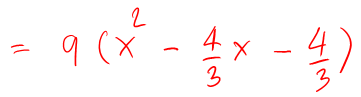 = 9 (x² - 4/3 x - 4/3)